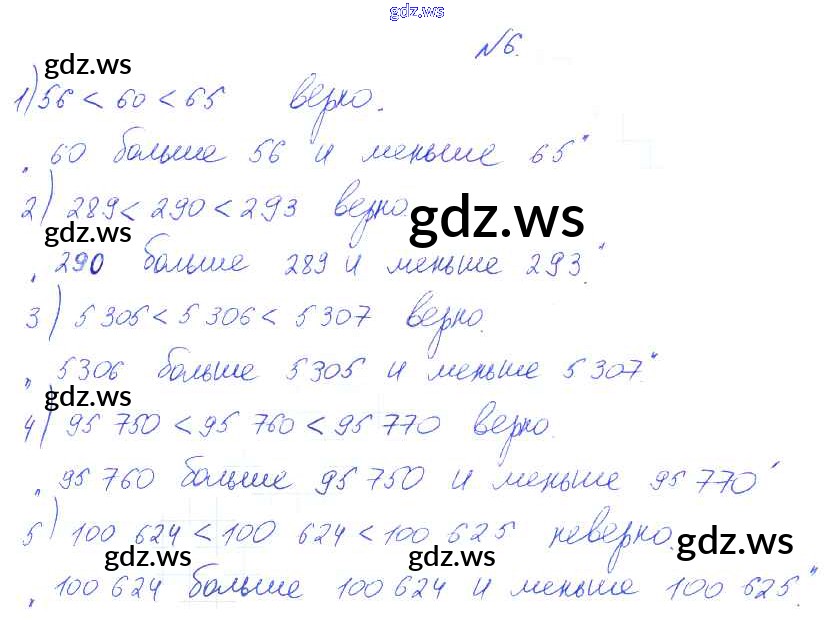 gdz.ws
№6.
gdz.ws
1) 56 < 60 < 65 верно.
„60 больше 56 и меньше 65"
2) 289 < 290 < 293 верно.
gdz.ws
gdz.ws
„290 больше 289 и меньше 293."
3) 5 305 < 5 306 < 5 307 верно.
„5306 больше 5305 и меньше 5307"
gdz.ws
4) 95 750 < 95 760 < 95 770 верно.
„95 760 больше 95 750 и меньше 95 770"
5) 100 624 < 100 624 < 100 625 неверно.
gdz.ws
gdz.ws
gdz.ws
„100 624 больше 100 624 и меньше 100 625."